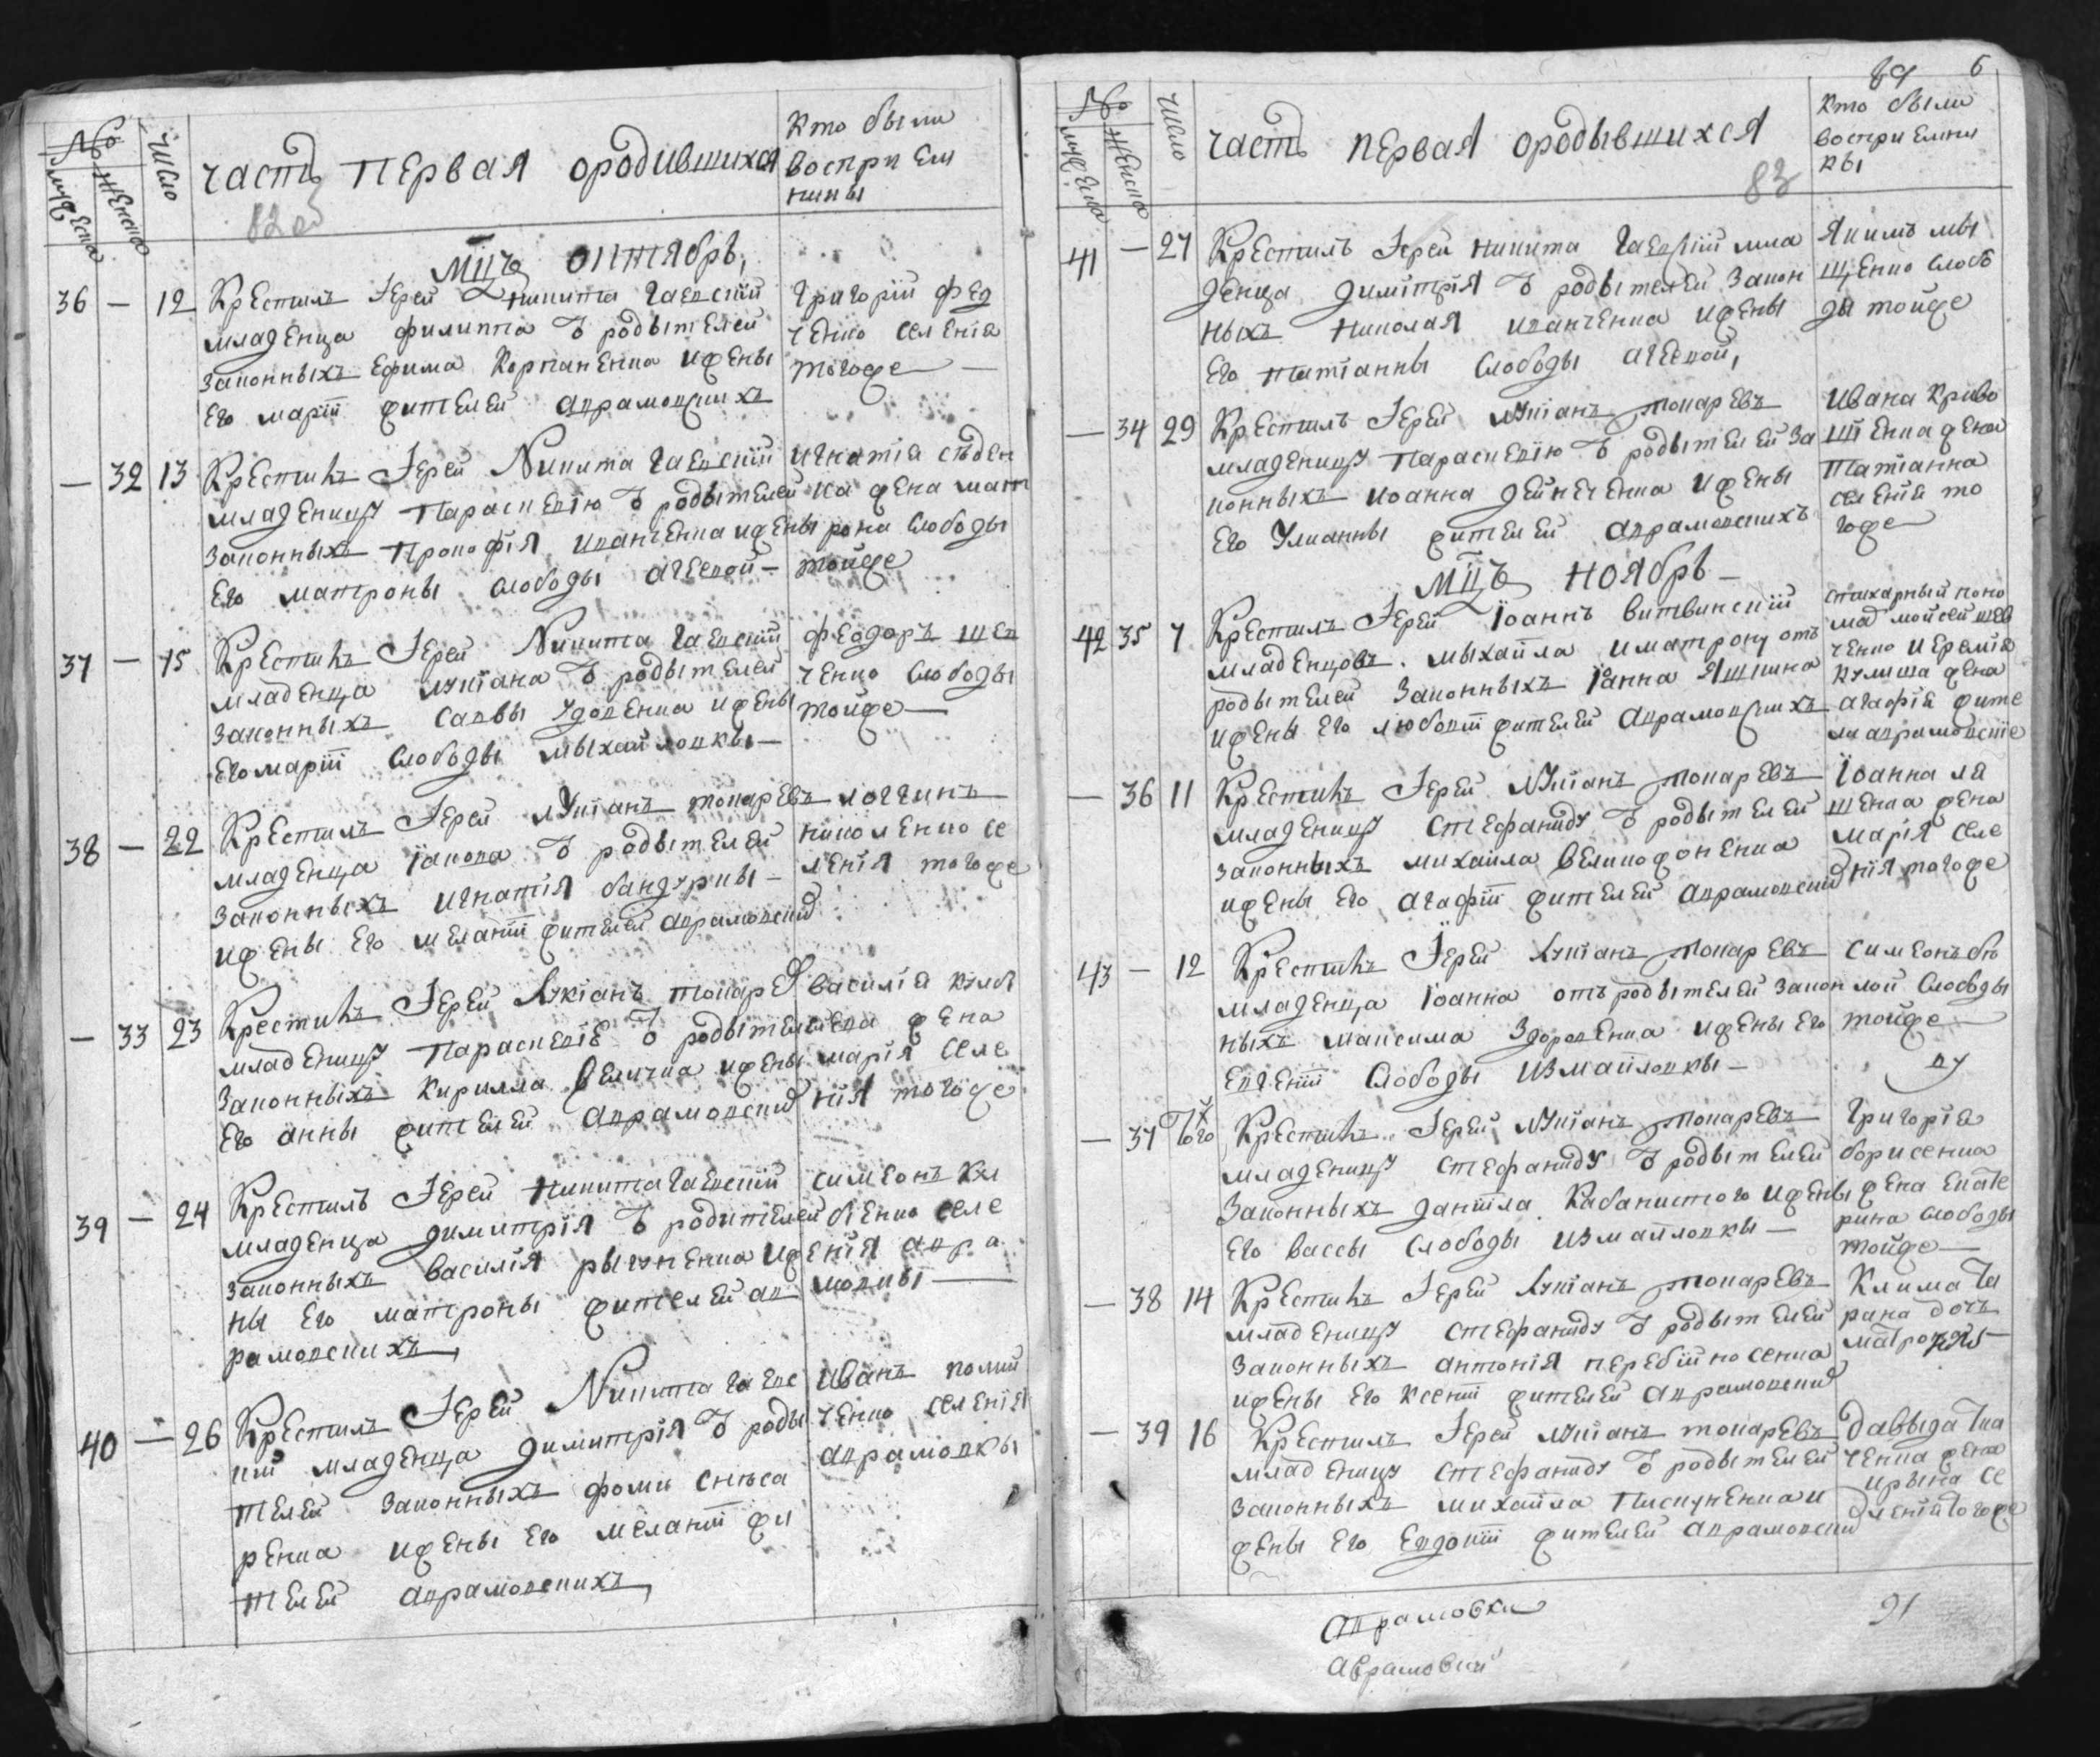 №
мужеска
женска
число
часть первая ородившихся
Кто были
восприем
ники
82 об
Мцъ октябрь,
36 — 12 Крестилъ Іерей Никита Гаевскій
младенца филиппа ѿ родытелей
законныхъ Ефима Корпаненка ижены
Его маріи жителей Аврамовскихъ
Григорій Фед
ченко селенія
тогоже —
— 32 13 Крестилъ Іерей Никита Гаевскій
младеницу Параскевію ѿ родытелей
законныхъ Прокофія иванченка ижены
Его матроны слободы Агеевой —
Игнатія сѣден
ка жена мат
рона слободы
тойже
37 — 15 Крестилъ Іерей Никита Гаевскій
младенца лукіана ѿ родытелей
законныхъ саввы Удовенка ижены
Егомаріи слободы мыхайловкы —
феодоръ шев
ченко слободы
тойже —
38 — 22 Крестилъ Іерей лукіанъ токаревъ
младенца Іакова ѿ родытелей
законныхъ игнатія бандуркы —
ижены Его меланіи жителей аврамовский
логгинъ
николенко се
ленія тогоже
— 33 23 Крестилъ Іерей Лукіанъ токарев
младеницу Параскевіе ѿ родытелей
законныхъ Кирилла величка ижены
Его анны жителей Аврамовский
василія
жена
марія селе
нія тогоже
39 — 24 Крестилъ Іерей Никита Гаевскій
младенца димитрія ѿ родителей
законныхъ василія рыгуненка иже
ны Его матроны жителей ав
рамовскихъ,
симеонъ Кли
біенко селе
нія авра
мовкы —
40 — 26 Крестилъ Іерей Никита Гаевс
кій младенца димитрія ѿ роды
телей законныхъ фомы снѣса
ренка ижены Его меланіи жи
телей аврамовскихъ,
Иванъ помий
ченко селенія
аврамовкы
89 6
№
мужеска
женска
число
часть первая ородывшихся
Кто были
восприемни
кы
83
41 — 27 Крестилъ Іерей Никита Гаевскій мла
денца димітрія ѿ родытелей закон
ныхъ Николая иванченка ижены
Его татіанны слободы Агеевой,
Якимъ мы
щенко слобо
ды тойже
— 34 29 Крестилъ Іерей лукіанъ токаревъ
младеницу Параскевію ѿ родытелей за
конныхъ иоанна дейнеченка ижены
Его Улианны жителей Аврамовскихъ
Ивана Криво
шіенка жена
татіанна
селенія то
гоже
Мцъ ноябрь —
42 35 7 Крестилъ Іерей Іоаннъ витвинскій
младенцовъ мыхайла иматрону отъ
родытелей законныхъ Іанна Яшника
ижены Его любови жителей Аврамовскихъ
стихарный поно
мар мойсей шев
ченко иеремія
кулиша жена
агафія жите
ли аврамовскіе
— 36 11 Крестилъ Іерей лукіанъ токаревъ
младеницу стефаниду ѿ родытелей
законныхъ михайла великофоненка
ижены Его агафіи жителей Аврамовский
Іоанна ля
шенка жена
марія селе
нія тогоже
43 — 12 Крестилъ Іерей Лукіанъ токаревъ
младенца Іоанна отъ родытелей закон
ныхъ максима здоровенка ижены Его
Евгеніи слободы измайловкы —
симеонъ бѣ
лой слободы
тойже —
— 37 того Крестилъ Іерей лукіанъ токаревъ
младеницу стефаниду ѿ родытелей
законныхъ даніила Кабанистого ижены
Его вассы слободы измайловкы —
Григорія
борисенка
жена Екате
рина слободы
тойже —
— 38 14 Крестилъ Іерей Лукіанъ токаревъ
младеницу стефаниду ѿ родытелей
законныхъ антонія перебійносенка
ижены Его Ксеніи жителей Аврамовский
Клима та
рана дочь
матрона
— 39 16 Крестилъ Іерей лукіанъ токаревъ
младеницу стефаниду ѿ родытелей
законныхъ михайла Пискуненка и
жены Его Евдокіи жителей аврамовский
давыда тка
ченка жена
ирына се
ленія тогоже
Аврамовки
Аврамовки
91